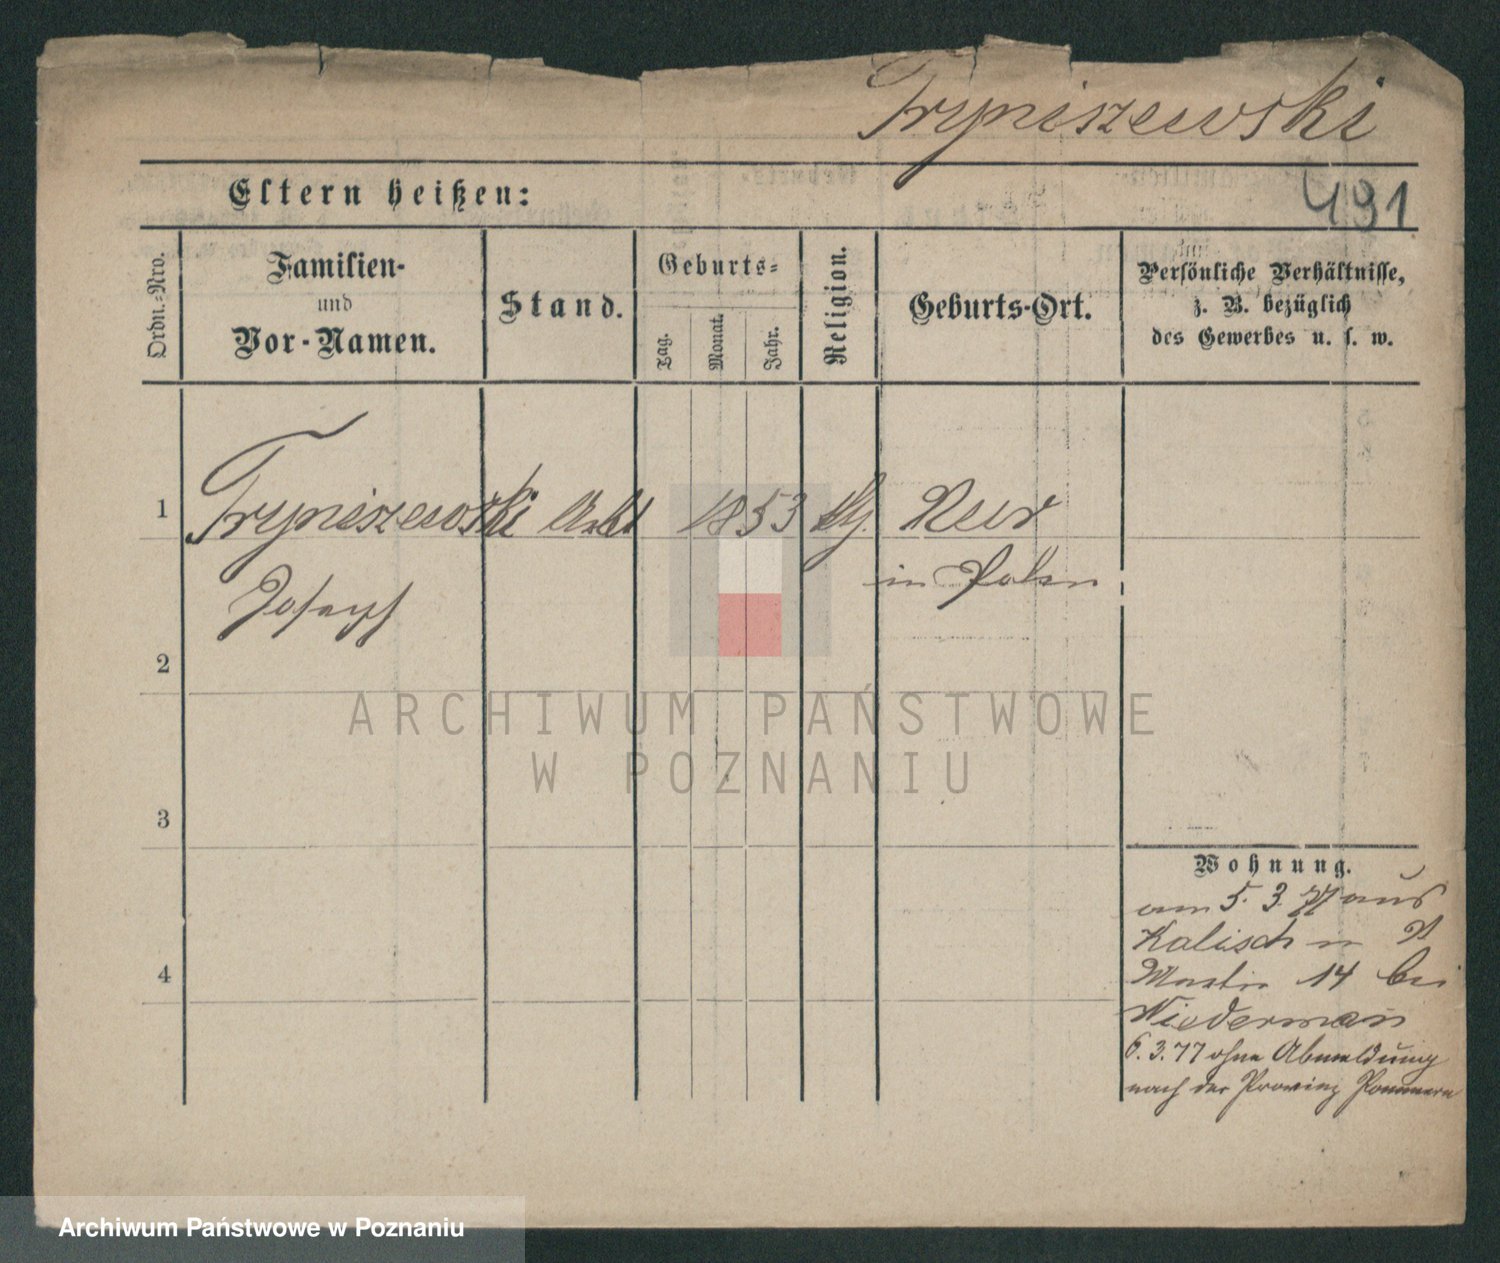 Tryniszewski
491
Eltern heißen:
Ordn.-Nro.
Familien-
und
Vor-Namen.
Stand.
Geburts-
Tag.
Monat.
Jahr.
Religion.
Geburts-Ort.
Persönliche Verhältnisse,
z. B. bezüglich
des Gewerbes u. s. w.
1
Tryniszewski
1853
in Polen
Joseph
2
ARCHIWUM PAŃSTWOWE
W POZNANIU
3
Wohnung.
am 5. 3. 77 aus
Kalisch n St
Martin 14 bei
4
Niederman
6. 3. 77 ohne Abmeldung
nach der Provinz Pommern
Archiwum Państwowe w Poznaniu